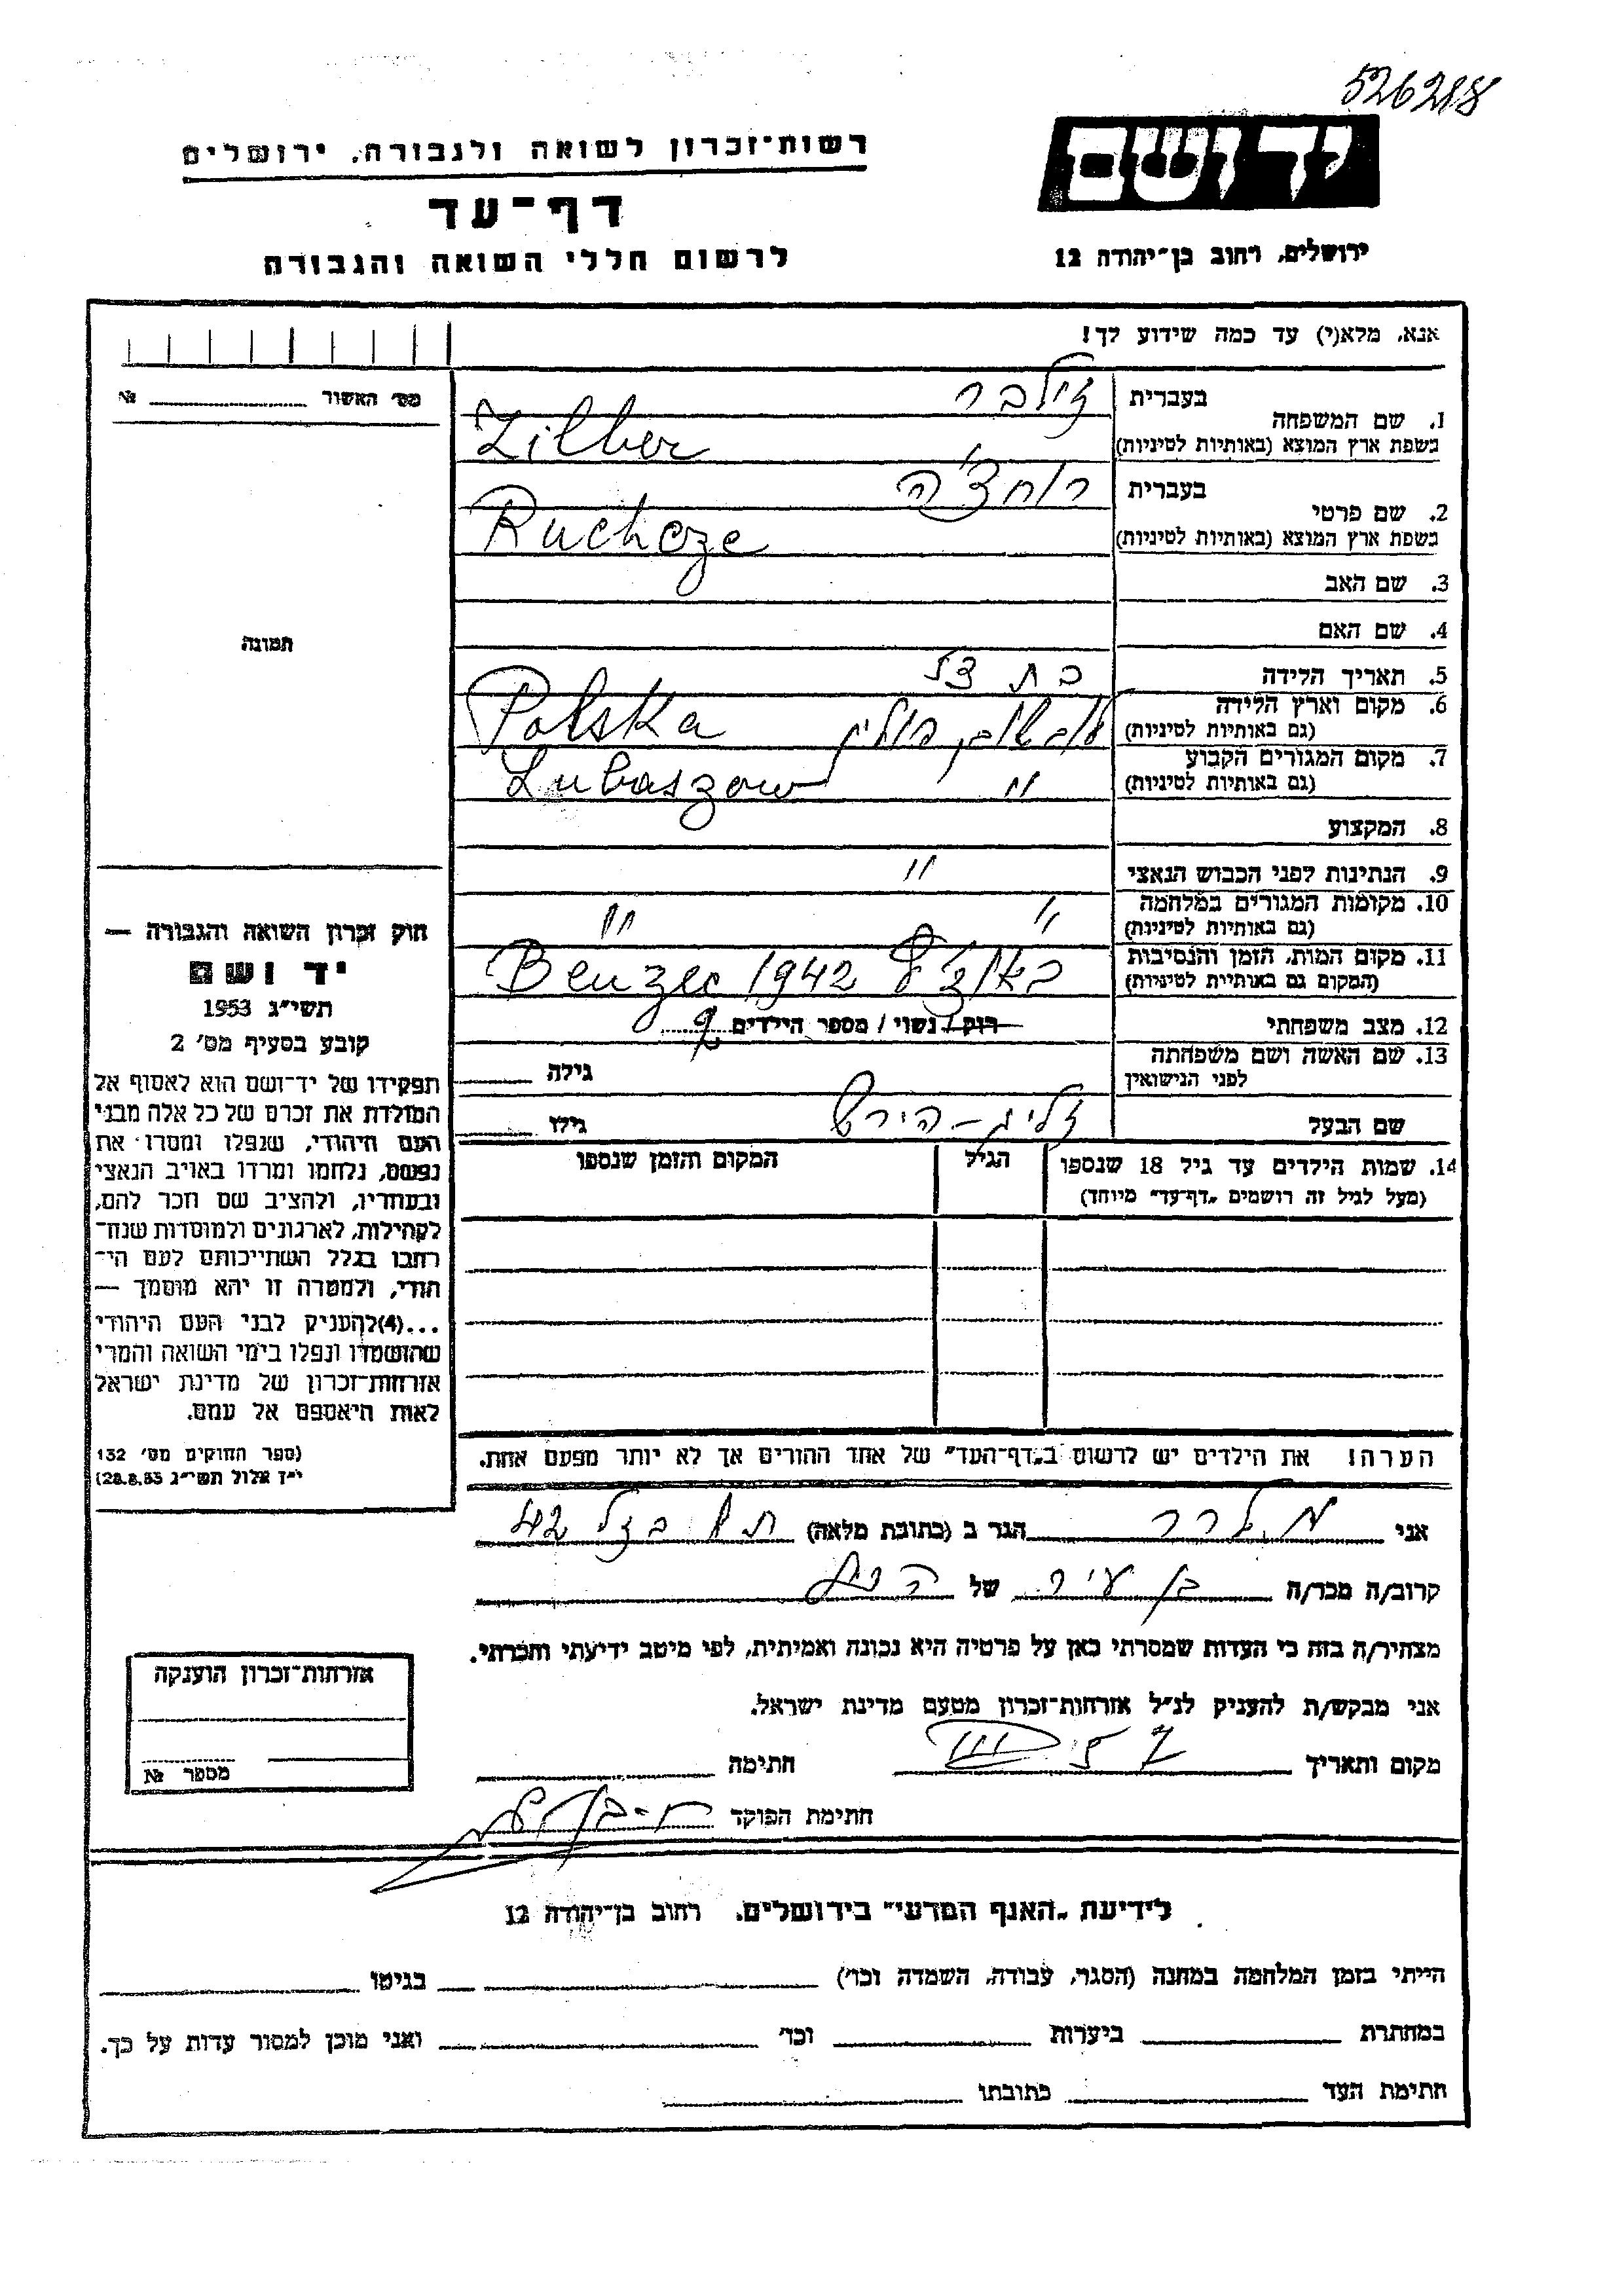 526218
יד ושם
רשות־זכרון לשואה ולגבורה, ירושלים
דף־עד
לרשום חללי השואה והגבורה
ירושלים, רחוב בן־יהודה 12
אנא, מלא(י) עד כמה שידוע לך!
מס׳ האשור №
1. שם המשפחה
בעברית זילבר
בשפת ארץ המוצא (באותיות לטיניות) Zilber
2. שם פרטי
בעברית רוחצ׳ה
בשפת ארץ המוצא (באותיות לטיניות) Ruchcze
3. שם האב
4. שם האם
5. תאריך הלידה בת
6. מקום וארץ הלידה
(גם באותיות לטיניות) פולין Polska
7. מקום המגורים הקבוע
(גם באותיות לטיניות) " Lubaszow
8. המקצוע
9. הנתינות לפני הכבוש הנאצי "
10. מקומות המגורים במלחמה
(גם באותיות לטיניות) " "
11. מקום המות, הזמן והנסיבות
(המקום גם באותיית לטיניות) 1942 Beuzec
12. מצב משפחתי רוק / נשוי / מספר הילדים 2
13. שם האשה ושם משפחתה
לפני הנישואין גילה
שם הבעל זליג - הירש גילו
14. שמות הילדים עד גיל 18 שנספו
(מעל לגיל זה רושמים „דף־עד״ מיוחד)
הגיל
המקום והזמן שנספו
תמונה
חוק זכרון השואה והגבורה —
יד ושם
תשי״ג 1953
קובע בסעיף מס׳ 2
תפקידו של יד־ושם הוא לאסוף אל
המולדת את זכרם של כל אלה מבני
העם היהודי, שנפלו ומסרו את
נפשם, נלחמו ומרדו באויב הנאצי
ובעוזריו, ולהציב שם וזכר להם,
לקהילות, לארגונים ולמוסדות שנח־
רבו בגלל השתייכותם לעם הי־
הודי, ולמטרה זו יהא מוסמך —
...(4) להעניק לבני העם היהודי
שהושמדו ונפלו בימי השואה והמרי
אזרחות־זכרון של מדינת ישראל
לאות היאספם אל עמם.
(ספר החוקים מס׳ 132
י״ז אלול תשי״ג 28.8.53)
הערה! את הילדים יש לרשום ב„דף־העד״ של אחד ההורים אך לא יותר מפעם אחת.
אני הגר ב (כתובת מלאה) 42
קרוב/ה מכר/ה בן עיר של
מצהיר/ה בזה כי העדות שמסרתי כאן על פרטיה היא נכונה ואמיתית, לפי מיטב ידיעתי והכרתי.
אני מבקש/ת להעניק לנ״ל אזרחות־זכרון מטעם מדינת ישראל.
מקום ותאריך חתימה
חתימת הפוקד
אזרחות־זכרון הוענקה
מספר №
לידיעת „האגף המדעי״ בירושלים. רחוב בן־יהודה 12
הייתי בזמן המלחמה במחנה (הסגר, עבודה, השמדה וכו׳) בגיטו
במחתרת ביערות וכו׳ ואני מוכן למסור עדות על כך.
חתימת העד כתובתו